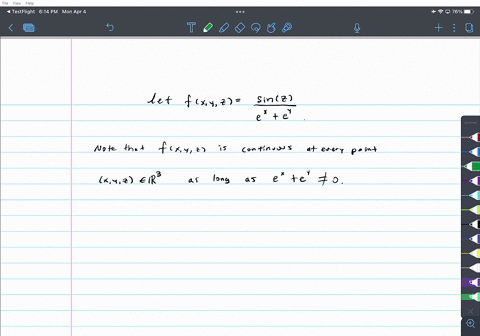 File View Help
TestFlight 6:14 PM Mon Apr 4 76%
let f(x,y,z) = sin(z) / e^x + e^y.
Note that f(x,y,z) is continuous at every point
(x,y,z) ∈ ℝ^3 as long as e^x + e^y ≠ 0.